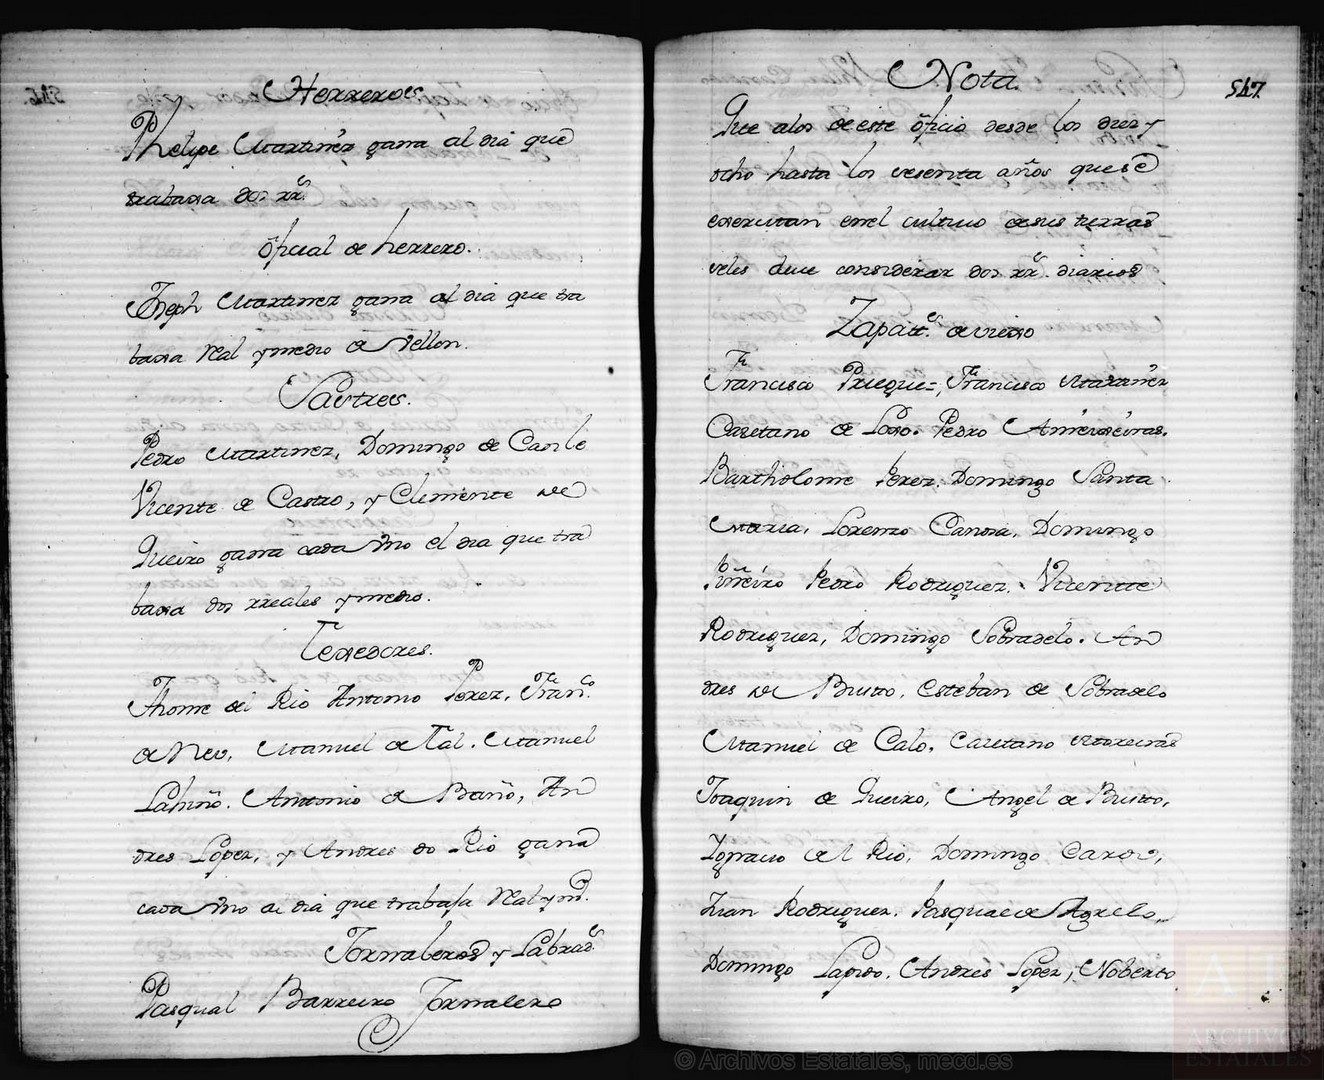 Herreros
Phelipe Martinez gana al dia que
trabaxa dos rrs.
Ofizial de herrero.
Joseph Martinez gana al dia que tra
baxa Real y medio de Vellon.
Sastres.
Pedro Martinez, Domingo de Caule
Vicente de Castro, y Clemente de
Queiro gana cada Uno el dia que tra
baxa dos rreales y medio.
Texedores.
Thome del Rio Antonio Perez, Franco.
de Neo, Manuel de Tal. Manuel
Lahiño. Antonio de Baño, An
dres Lopez, y Andres do Rio gana
cada Uno al dia que trabaja Real y md.
Jornaleros y Labrads.
Pasqual Barreiro Jornalero
547
Nota.
Que alos de este oficio desde los diez y
ocho hasta los sesenta años que se
exercitan en el cultivo de sus tierras
seles deve considerar dos rrs. diarios
Zapatts. de viexo
Francisco Priegue=, Francisco Martinez
Caietano de Loso. Pedro Ameixeiras.
Bartholome Perez, Domingo Santa
Maria, Lorenzo Candia, Domingo
Piñeiro Pedro Rodriguez, Vizente
Rodriguez, Domingo Sobradelo. An
dres de Busto, Esteban de Sobradelo
Manuel de Calo, Caietano Moreiras
Joaquin de Queiro, Angel de Busto,
Ygnacio del Rio, Domingo Caro,
Juan Rodriguez. Pasqual de Agrelo,
Domingo Lapido, Andres Lopez, Noberto
© Archivos Estatales, mecd.es
ARCHIVOS
ESTATALES